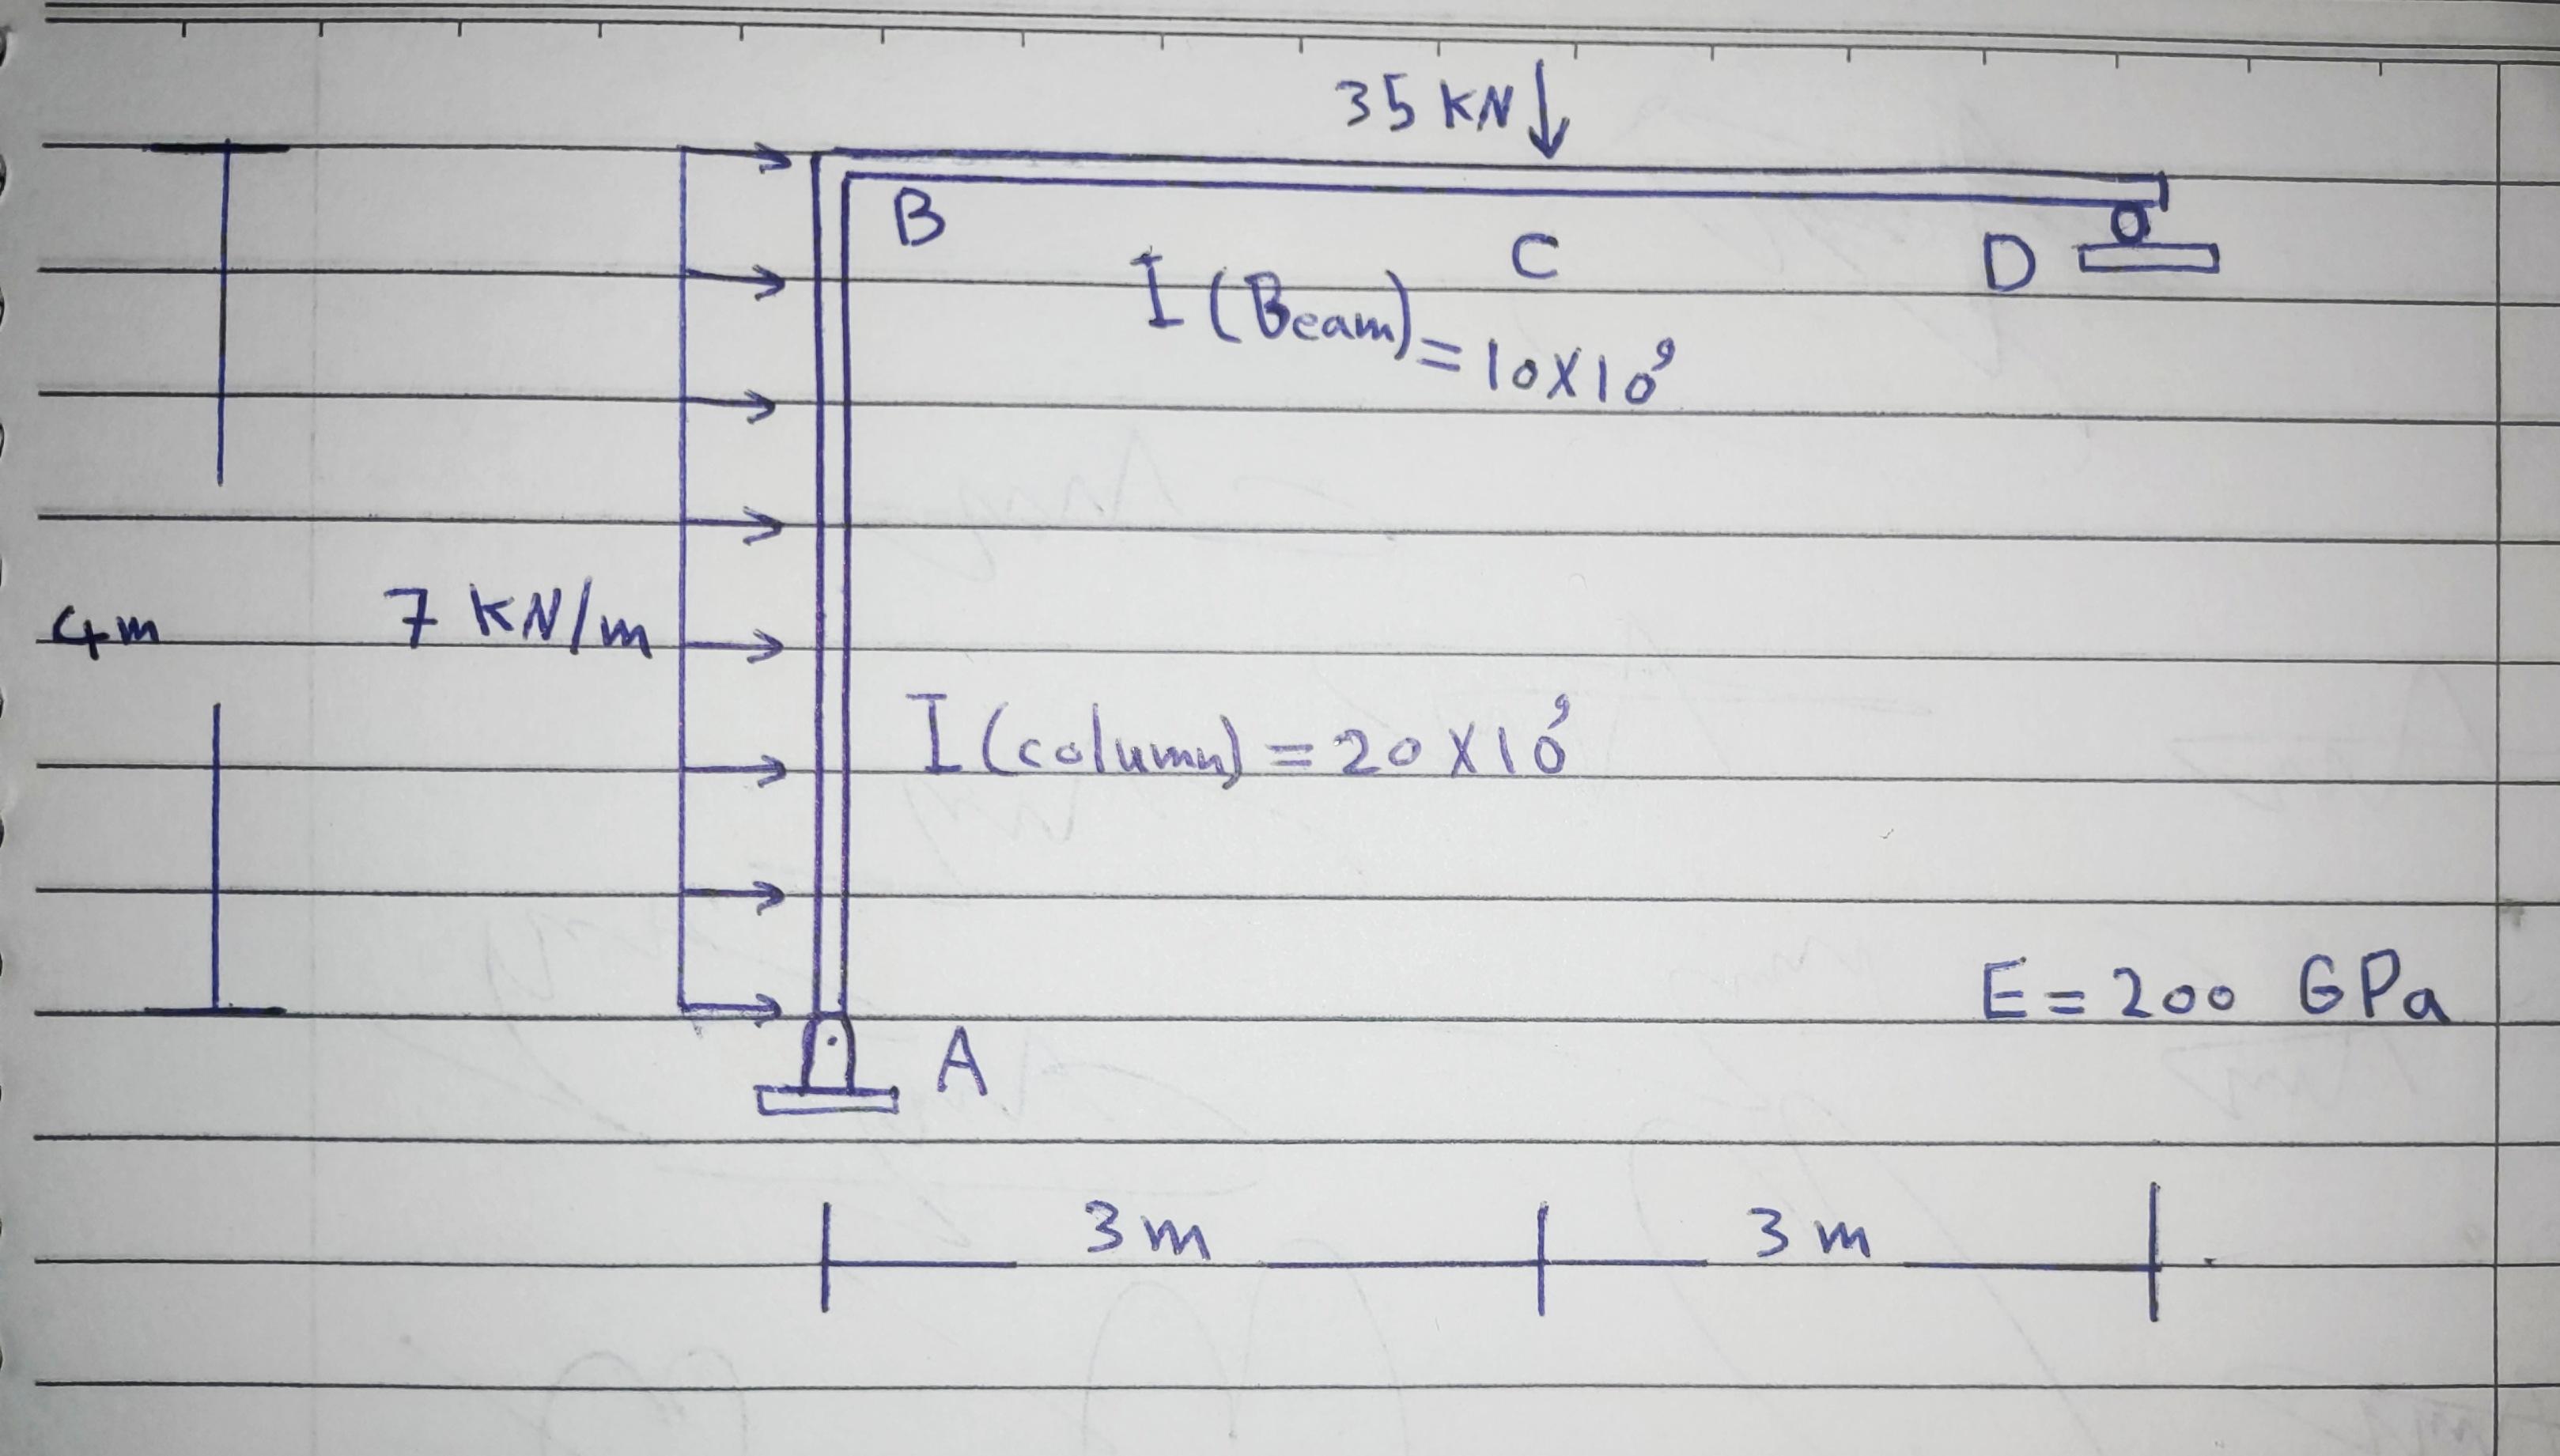 35 KN
B
C
D
I (Beam) = 10X10⁹
4m
7 KN/m
I (column) = 20 X10⁹
E = 200 GPa
A
3 m
3 m